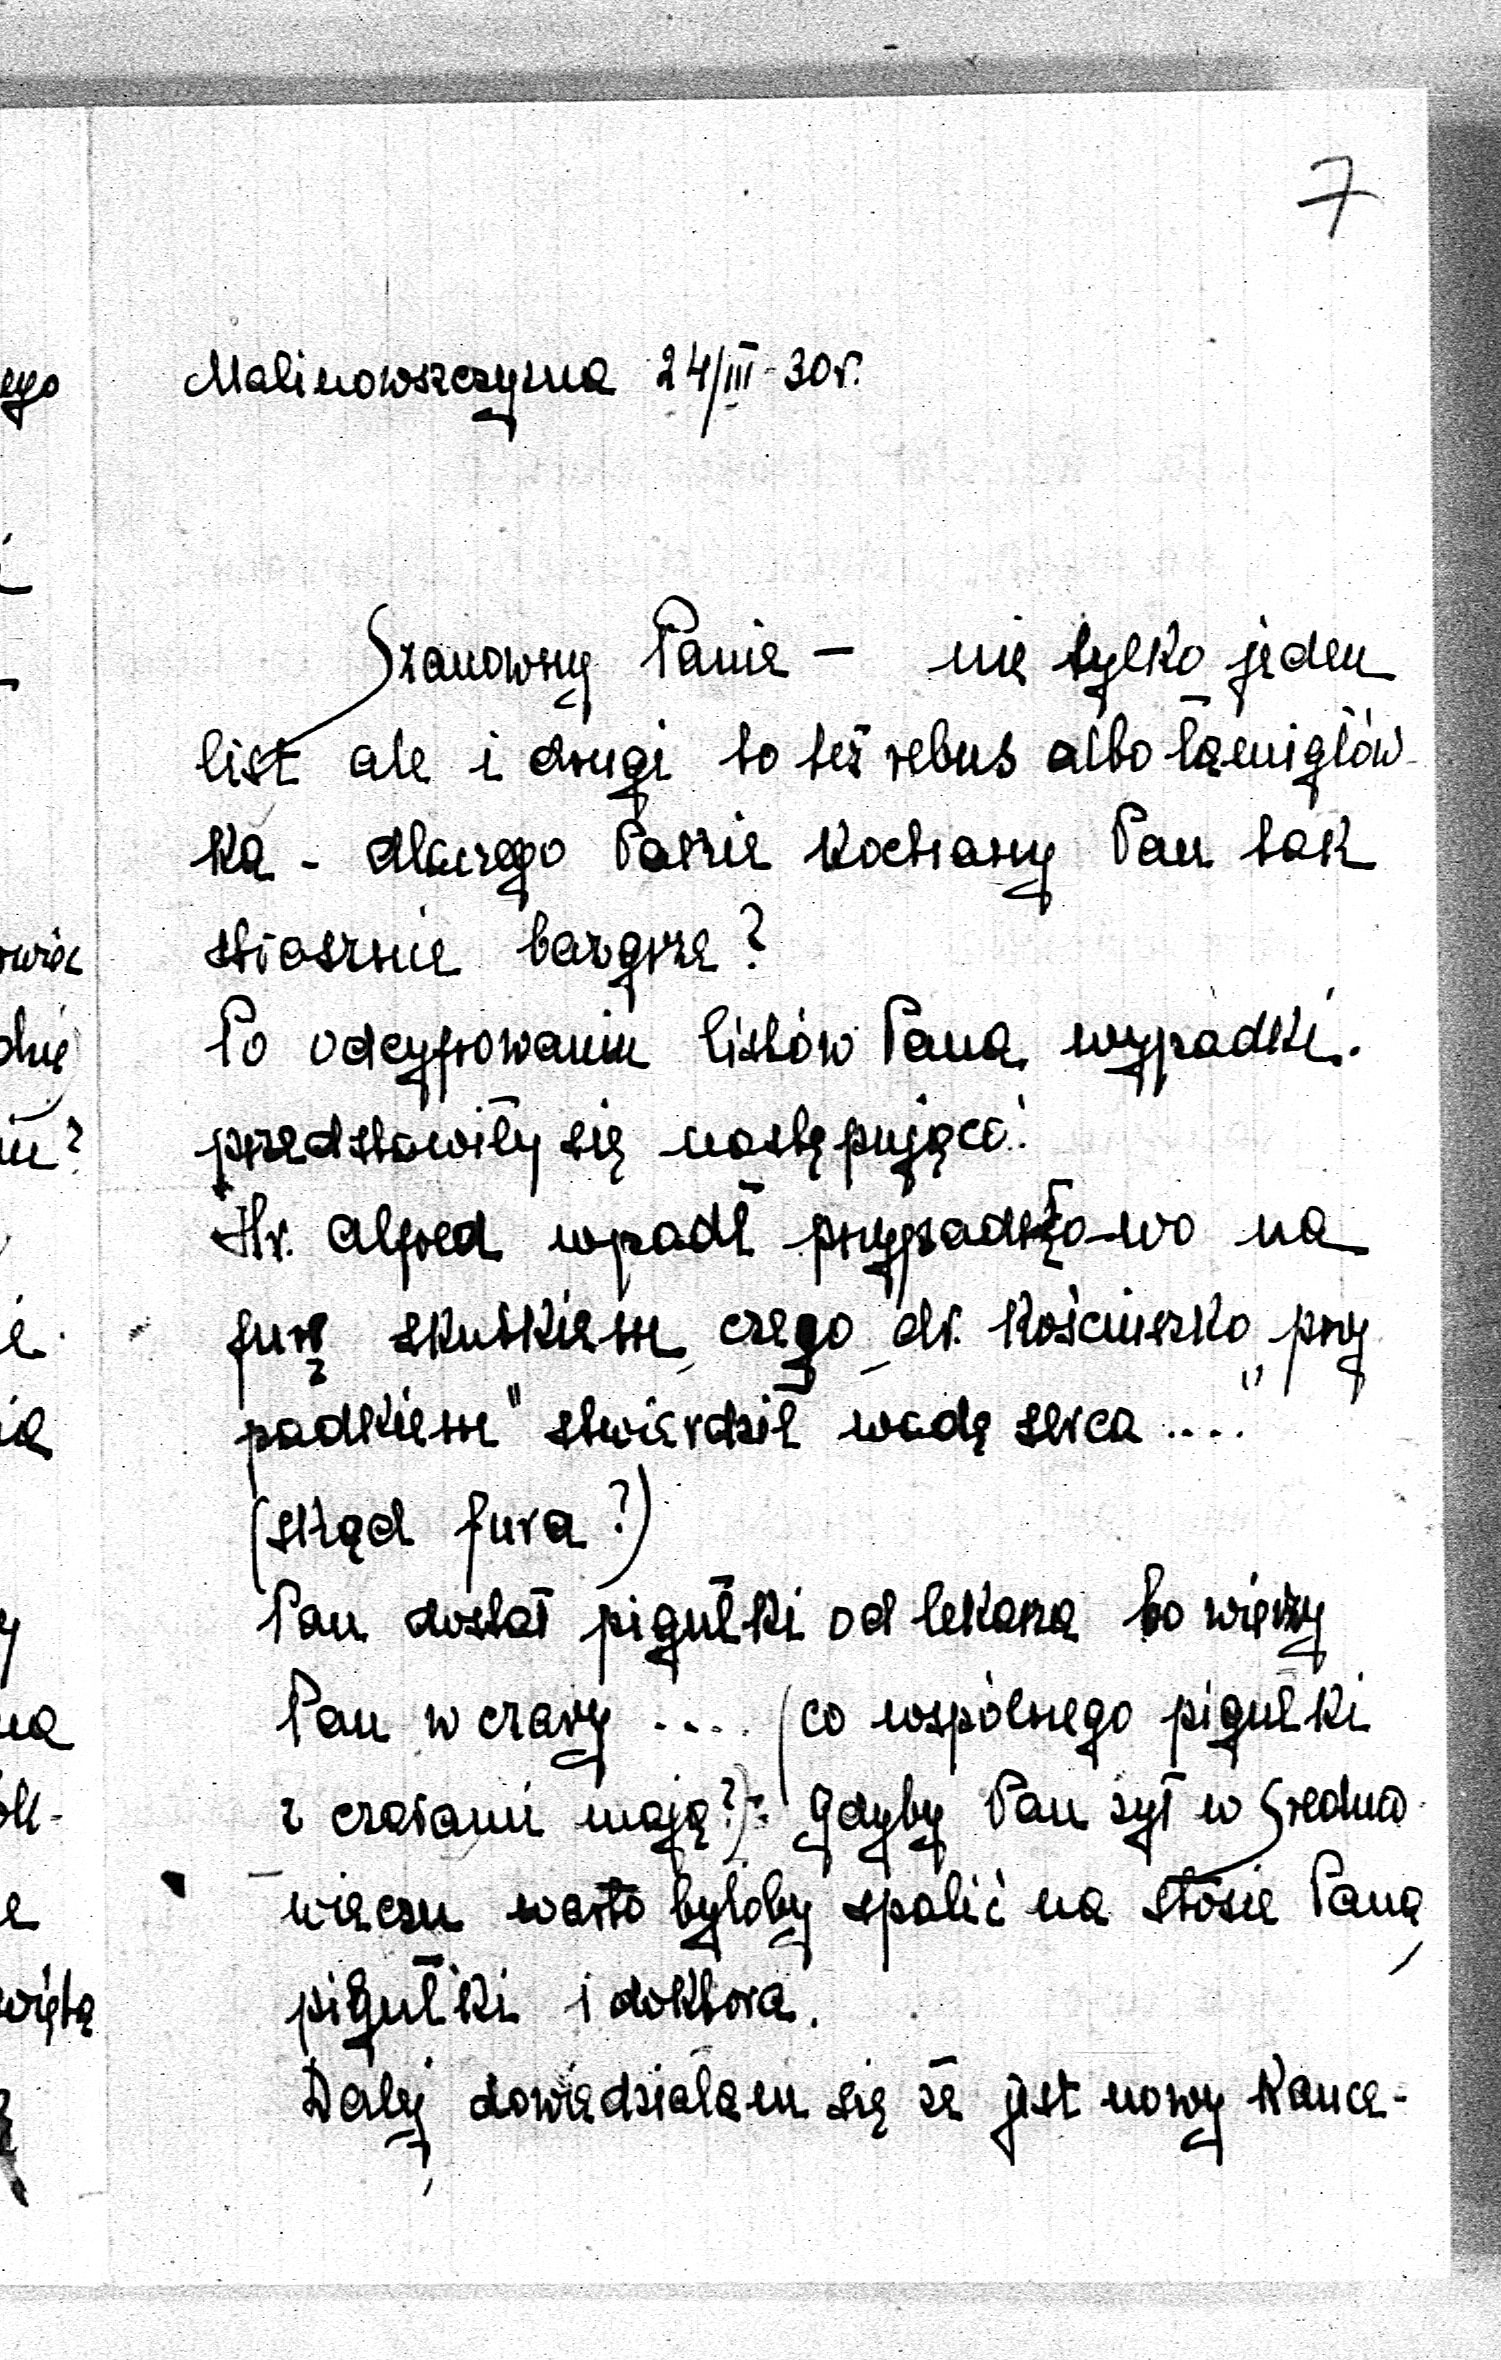 7
Malinowszczyzna 24/III-30r.
Szanowny Panie – nie tylko jeden
list ale i drugi to też rebus albo łamigłów-
ka - dlaczego Panie Kochany Pan tak
strasznie bazgrze?
Po odcyfrowaniu listów Pana wypadki
przedstawiły się następująco:
Hr. Alfred wpadł przypadkowo na
furę skutkiem czego dr. Kościuszko „przy
padkiem" stwierdził wadę serca ....
(skąd fura?)
Pan dostał pigułki od lekarza bo wierzy
Pan w czary .... (co wspólnego pigułki
z czarami mają?) Gdyby Pan żył w Średnio
wieczu warto byłoby spalić na stosie Pana,
pigułki i doktora.
Dalej dowiedziałam się że jest nowy Kance-